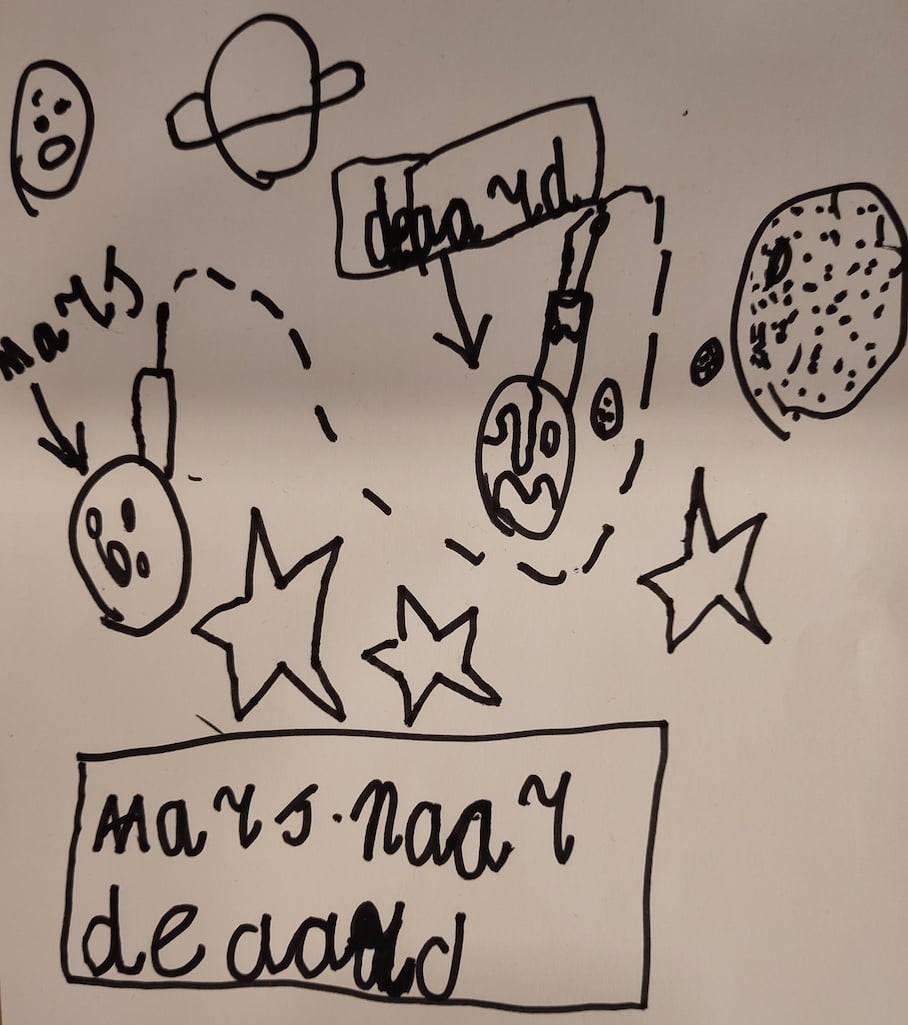 deaard
Mars
Mars. naar
de aard